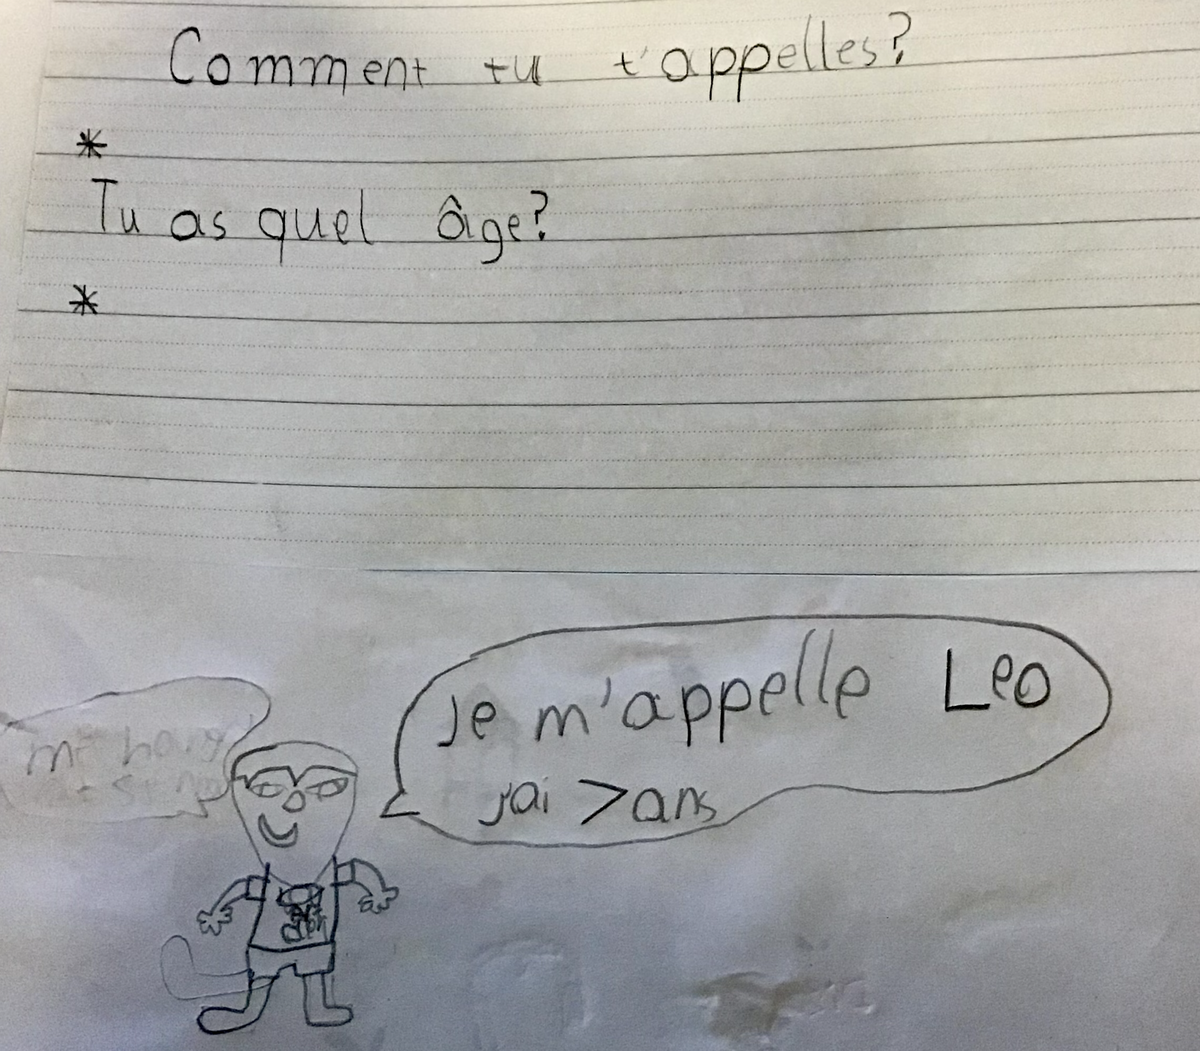 Comment tu t'appelles?
*
Tu as quel âge?
*
Je m'appelle Leo
j'ai 7 ans